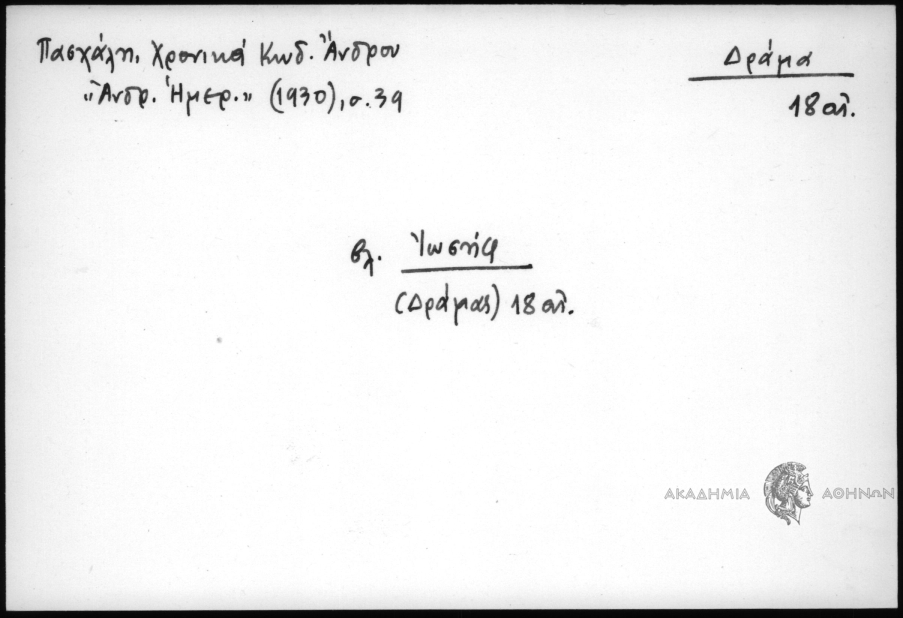 Πασχάλη, Χρονικά Κωδ. Ἄνδρου
"Ἀνδρ. Ἡμερ." (1930), σ. 39
Δράμα
18 αἰ.
βλ. Ἰωσήφ
(Δράμας) 18 αἰ.
ΑΚΑΔΗΜΙΑ ΑΘΗΝΩΝ